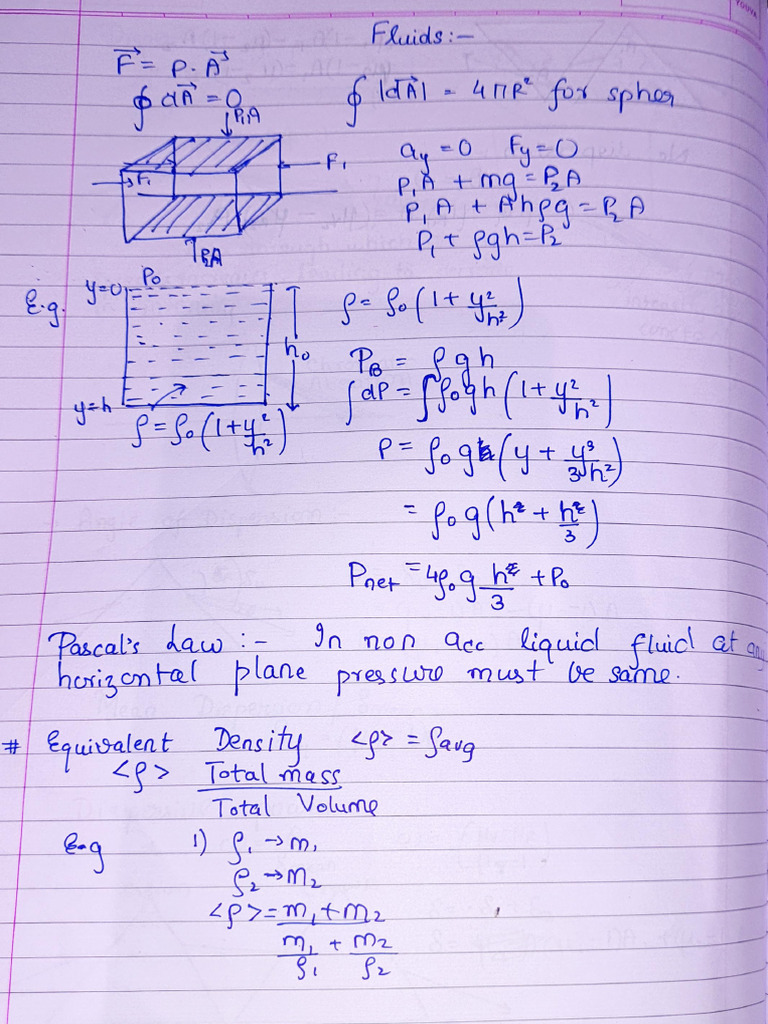 Fluids:-
F⃗ = P · A⃗
∮ dA⃗ = 0
∮ |dA⃗| = 4πR² for spher
P₁A
F₁
F₁
P₂A
ay = 0 Fy = 0
P₁A + mg = P₂A
P₁A + Ahρg = P₂A
P₁ + ρgh = P₂
E.g.
y=0
P₀
h₀
y=h
ρ = ρ₀(1 + y²/h²)
ρ = ρ₀(1 + y²/h²)
P_B = ρgh
∫dP = ∫ρ₀gh(1 + y²/h²)
P = ρ₀g(y + y³/3h²)
= ρ₀g(h + h/3)
Pnet = 4ρ₀g h/3 + P₀
Pascal's Law :- In non acc liquid fluid at any
horizontal plane pressure must be same.
# Equivalent Density <ρ> = ρavg
<ρ> Total mass / Total Volume
E.g 1) ρ₁ → m₁
ρ₂ → m₂
<ρ> = (m₁ + m₂) / (m₁/ρ₁ + m₂/ρ₂)